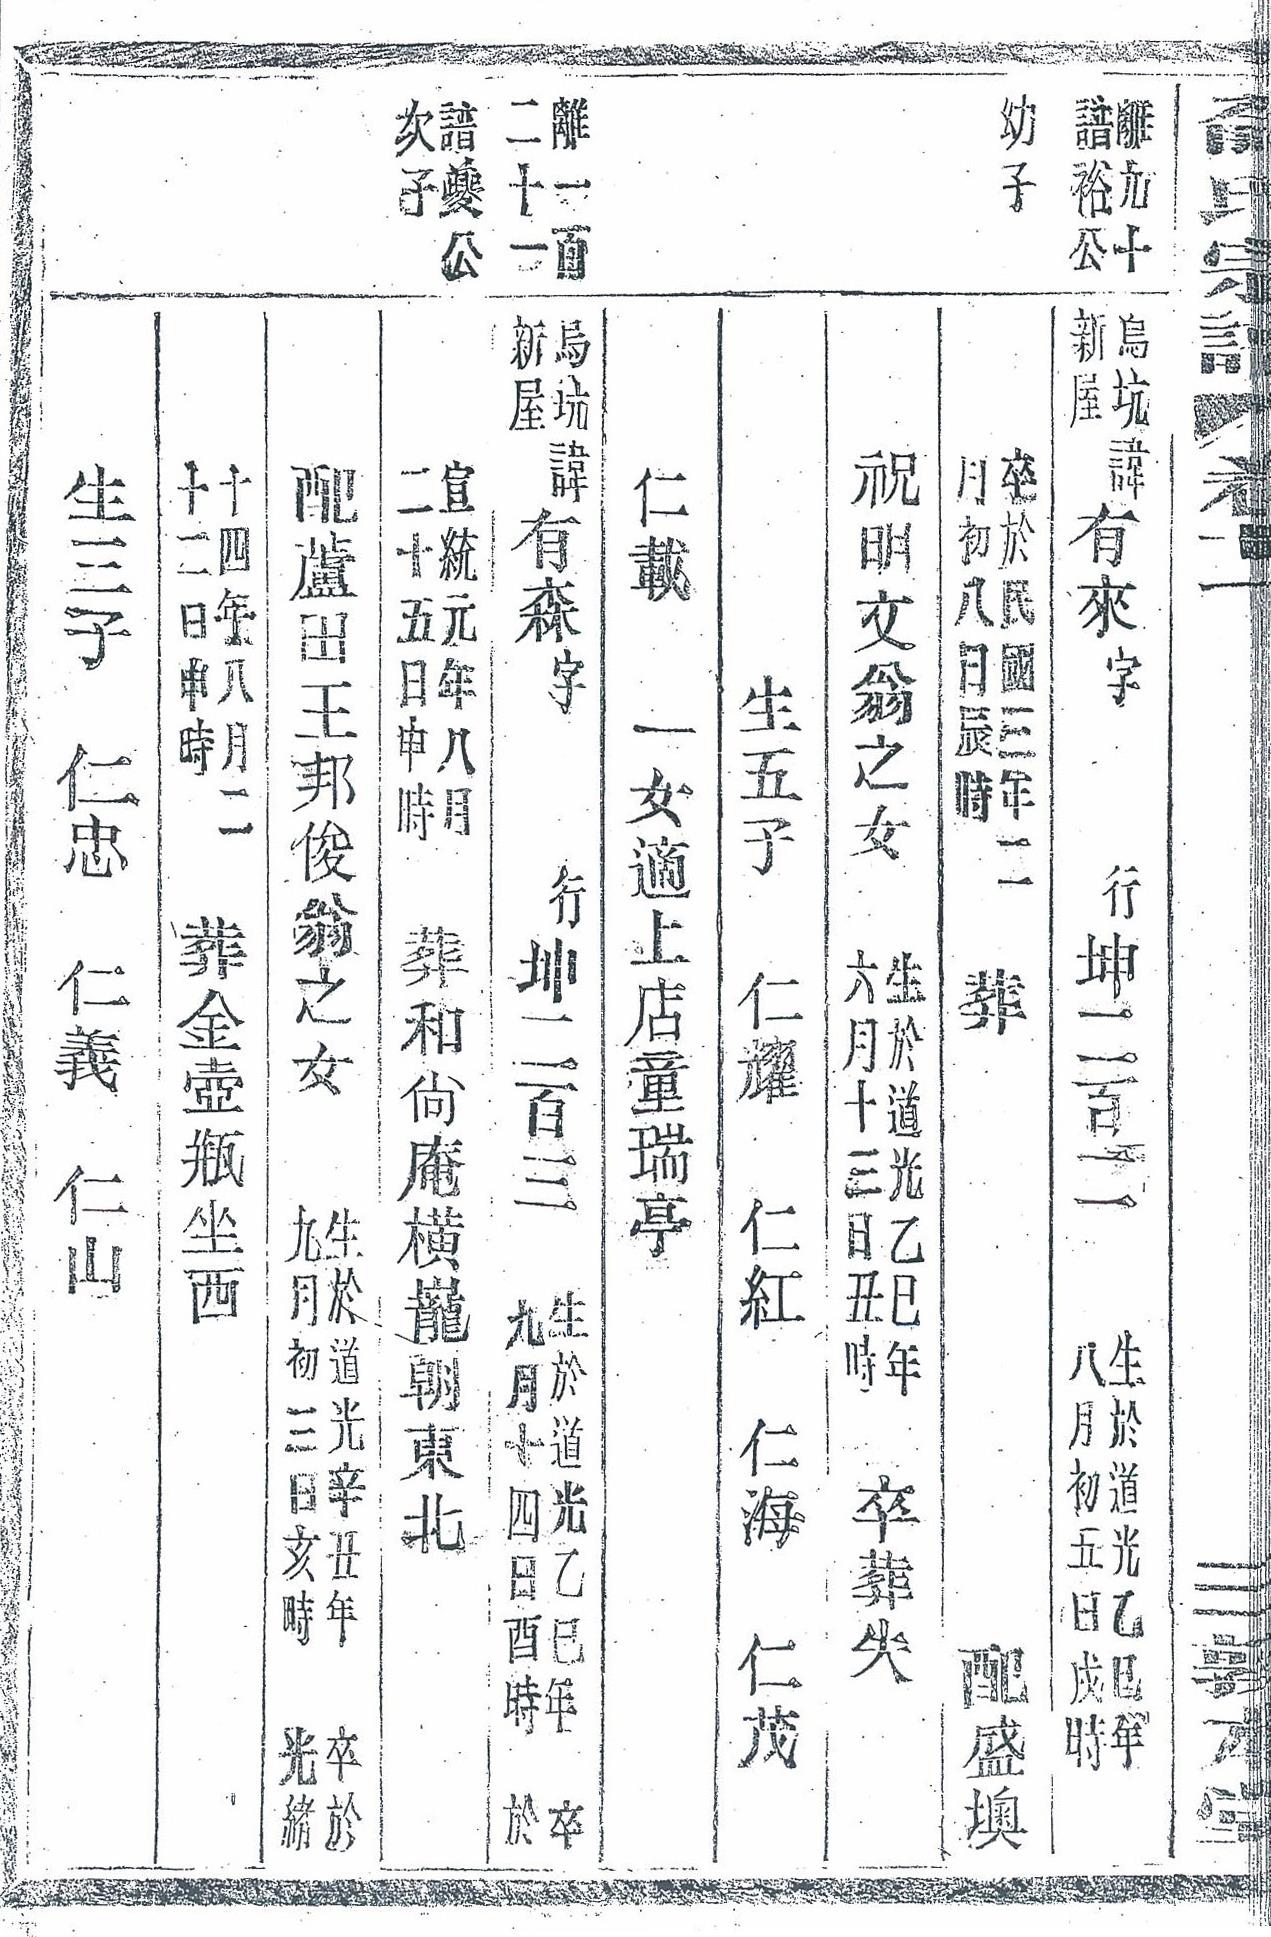 氏宗譜 卷二 三 敦本堂
離九十
譜裕公
幼子
烏坑諱有來字 行坤一二百二 生於道光乙巳年八月初五日戌時
卒於民國三年二月初八日辰時 葬 配盛墺
祝明文翁之女 生於道光乙巳年六月十三日丑時 卒葬失
新屋
生五子 仁耀 仁紅 仁海 仁茂
仁載 一女適上店童瑞亭
離一百
二十一
譜夔公
次子
烏坑
新屋
諱有森字 行坤一二百三 生於道光乙巳年九月十四日酉時 卒於
宣統元年八月二十五日申時 葬和尚庵橫巃朝東北
配蘆田王邦俊翁之女 生於道光辛丑年九月初三日亥時 卒於光緒
十四年八月二十二日申時 葬金壺瓶坐西
生三子 仁忠 仁義 仁山